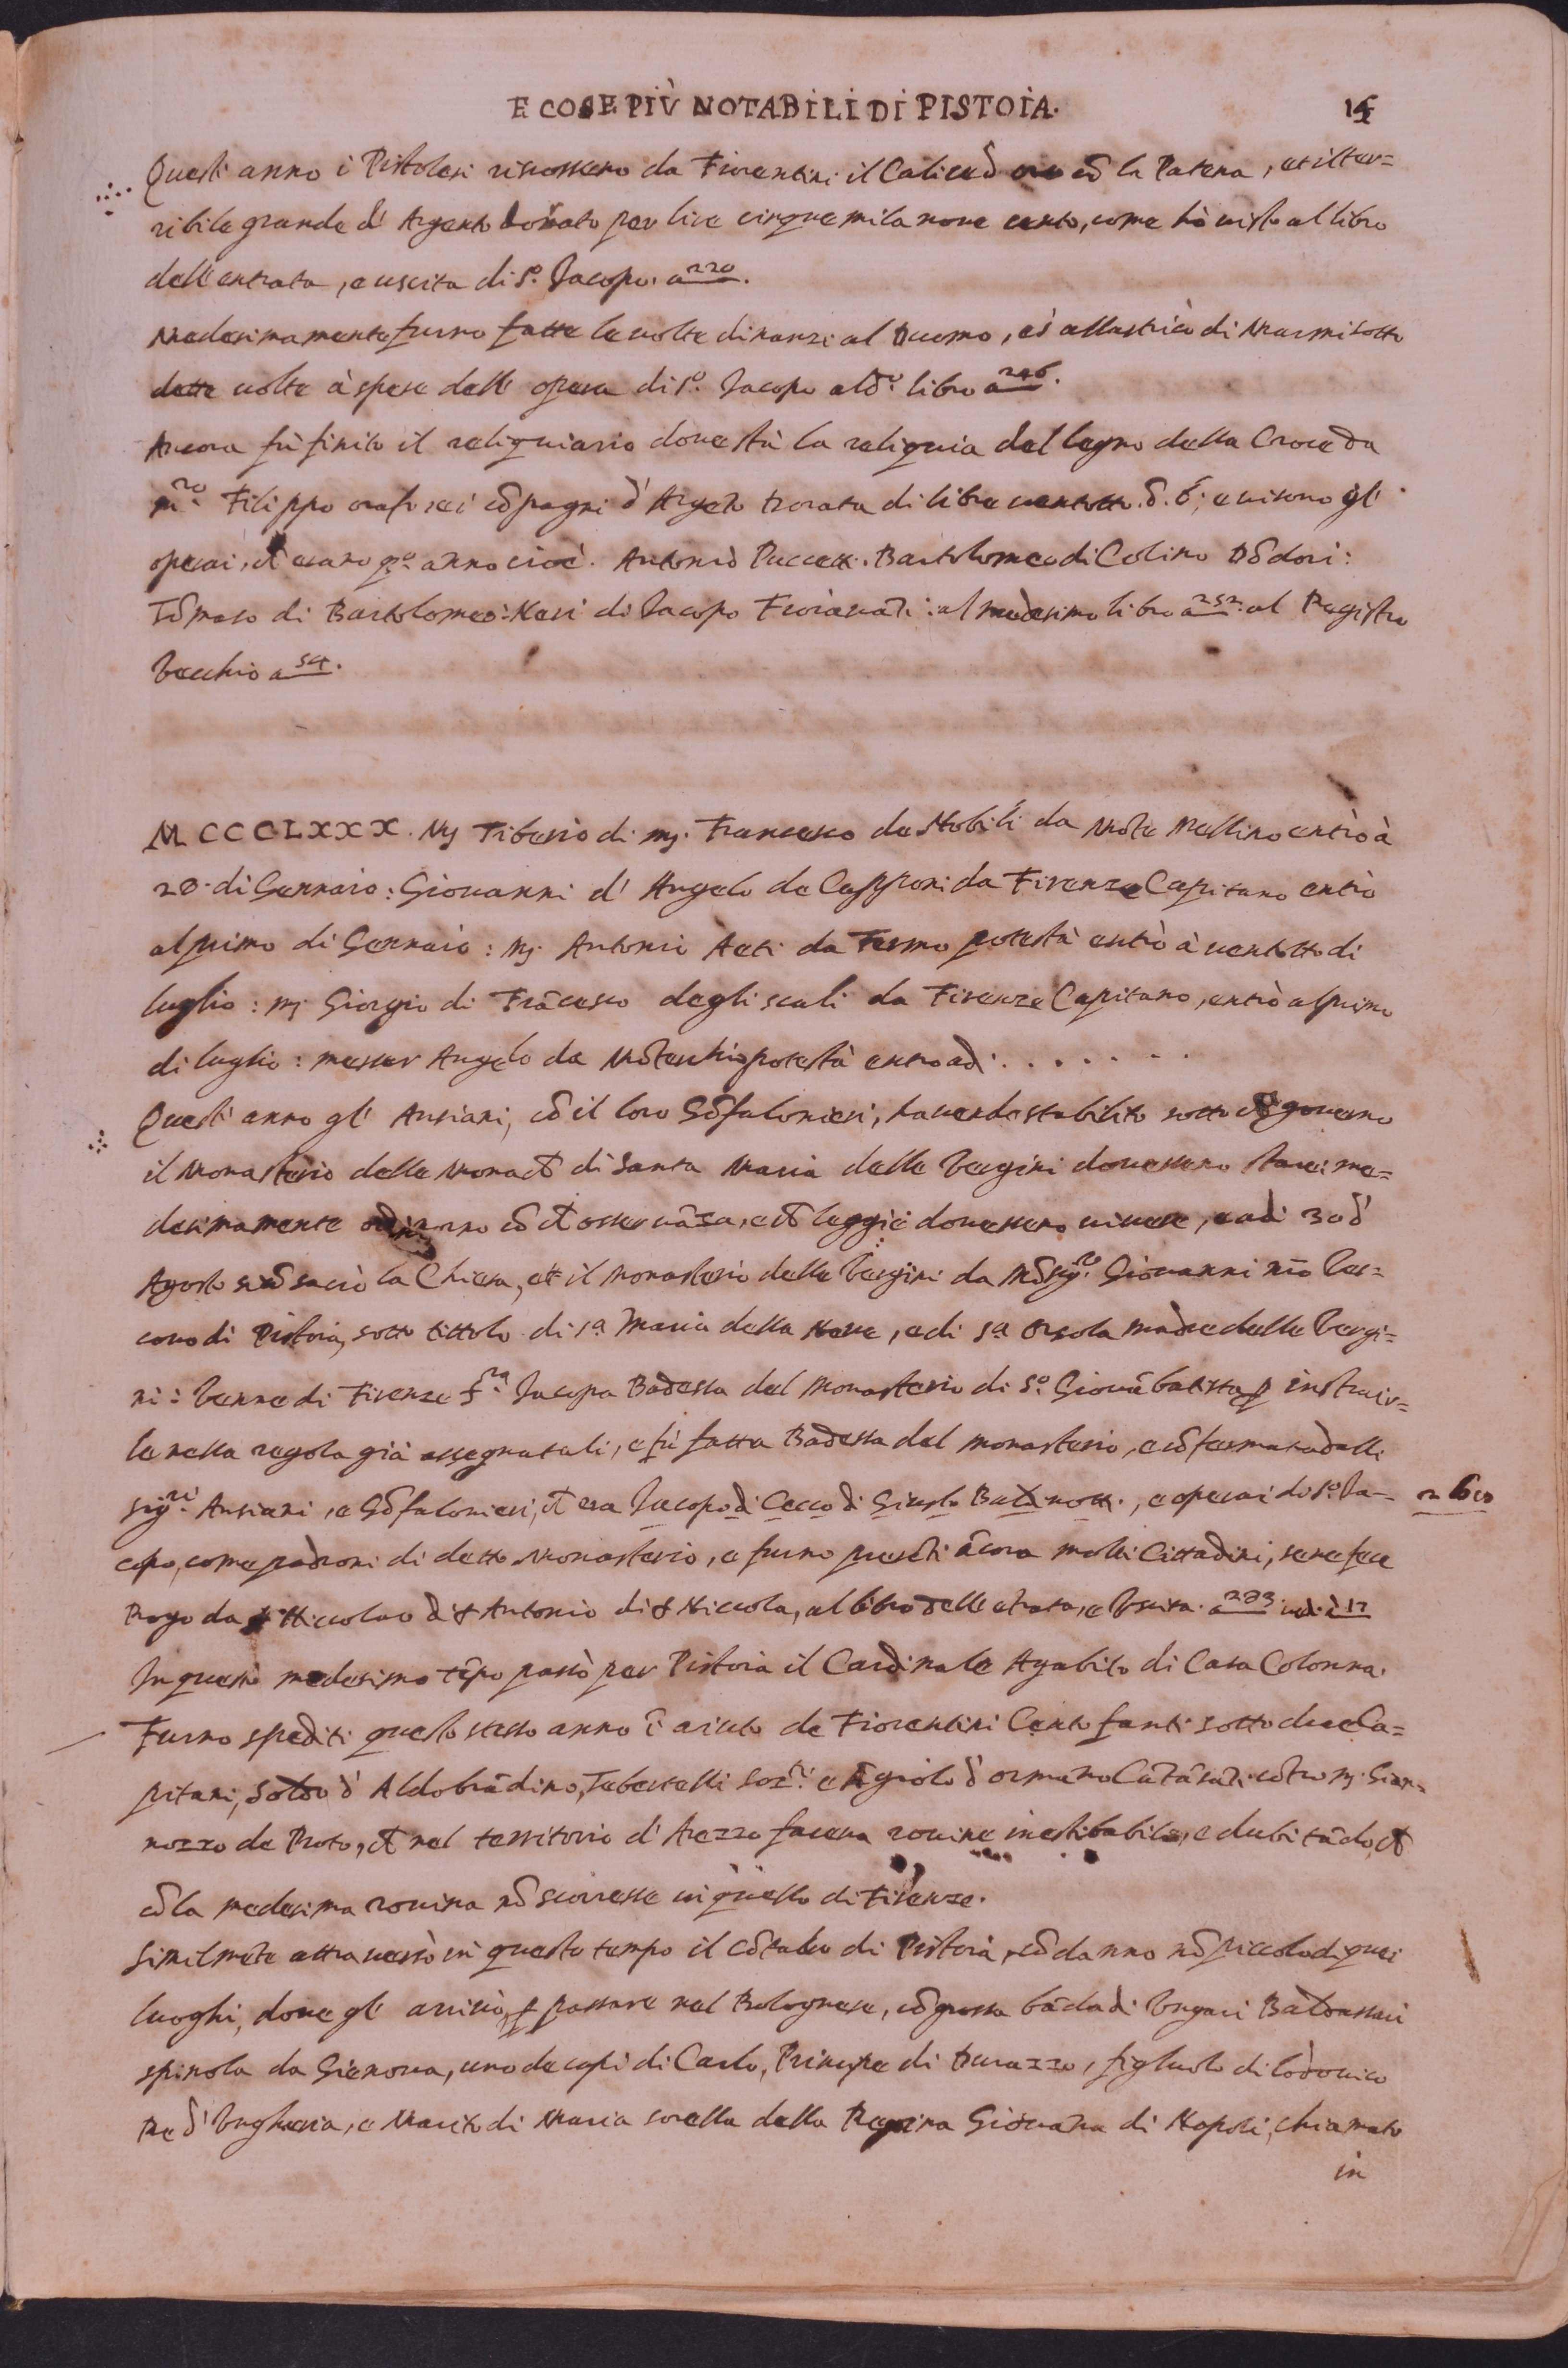 E COSE PIÙ NOTABILI DI PISTOIA.
Quest'anno i Pistolesi riscossero da Fiorentini il Calice d'oro cō la Patena, et il ter=
ribile grande d'Argento dorato per lire cinque mila nove cento, come hò visto al libro
dell'entrata, e uscita di S.º Jacopo. a 220.
Medesimamente furno fatte le volte dinanzi al Duomo, et allastricò di Marmi sotto
dette volte à spese dell'opera di S.º Jacopo al d.º libro a 246.
Ancora fù finito il reliquiario dove stà la reliquia del legno della Croce da
m.ro Filippo orafo, et i cōpagni d'Argēto dorata di libre ventotto. e visono gl'
operai, ch'erano q.º anno cioè. Antonio Puccetti. Bartolomeo di Colino Dōdori:
Tōmaso di Bartolomeo: Neri di Jacopo Fioravāti: al medesimo libro a 252. al Registro
Vecchio a 54.
MCCCLXXX. Mſ. Tiberio di mſ. Francesco de Nobili da Mōte Mellino entrò à
28. di Gennaio: Giovanni d'Angelo de Capponi da Firenze Capitano entrò
al primo di Gennaio: Mſ. Antonio Aeti da Fermo potestà entrò à ventotto di
luglio: mſ. Giorgio di Frācesco degli scali da Firenze Capitano, entrò al primo
di luglio: messer Angelo da Mōtecchio potestà entro adi . . . . . . .
Quest'anno gl'Anziani, cō il loro Gōfalonieri, havendo stabilito sotto che governo
il Monasterio delle Monache di Santa Maria delle Vergini dovessero stare: me=
desimamente ordinorno cō che osservāza, e che leggie dovessero vivere, e adi 30 d'
Agosto si cōsacrò la Chiesa, et il monasterio delle Vergini da Mōsig.re Giovanni nr̄o Ves=
covo di Pistoia, sotto tittolo di S.a Maria della Neve, e di S.a Orsola madre delle Vergi=
ni: Venne di Firenze s.ra Jacopa Badessa del Monasterio di S.º Giovābatista p instruir=
le nella regola già assegnatali, e fù fatta Badessa del monasterio, e cōfermata dalli
Sig.ri Anziani, e Gōfalonieri, ch'era Jacopo di Cecco di Giusto Baldinotti, e operai di S.º Ja=
copo, come padroni di detto Monasterio, e furno presēti ācora molti Cittadini, se ne fece
Rogo da s. Niccolao di s. Antonio di s. Niccola, al libro dell'ētrata, e Uscita a 293
In questo medesimo tēpo passò per Pistoia il Cardinale Agabito di Casa Colonna.
Furno spediti questo stesso anno ī aiuto de Fiorentini Cento fanti sotto due Ca=
pitani, Soldo d'Aldobrādino, Tebertelli Soz.ri e Agnolo d'ormāno Cātāsāti cōtro mſ. Gian=
nozzo de Proto, che nel territorio d'Arezzo faceva rovine inestibabile, e dubitādo, che
cō la medesima rovina nō scorresse in quello di Firenze.
Similmēte attraversò in questo tempo il Cōtado di Pistoia, cō danno nō piccolo di quei
luoghi, dove gl'arrivò, p passare nel Bolognese, cō grossa bāda di Vngari Baldassari
spinola da Gienova, uno de capi di Carlo, Principe di Durazzo, figluolo di Lodovico
Re d'Vngheria, e Marito di Maria sorella della Regina Giovāna di Napoli, chiamato
in